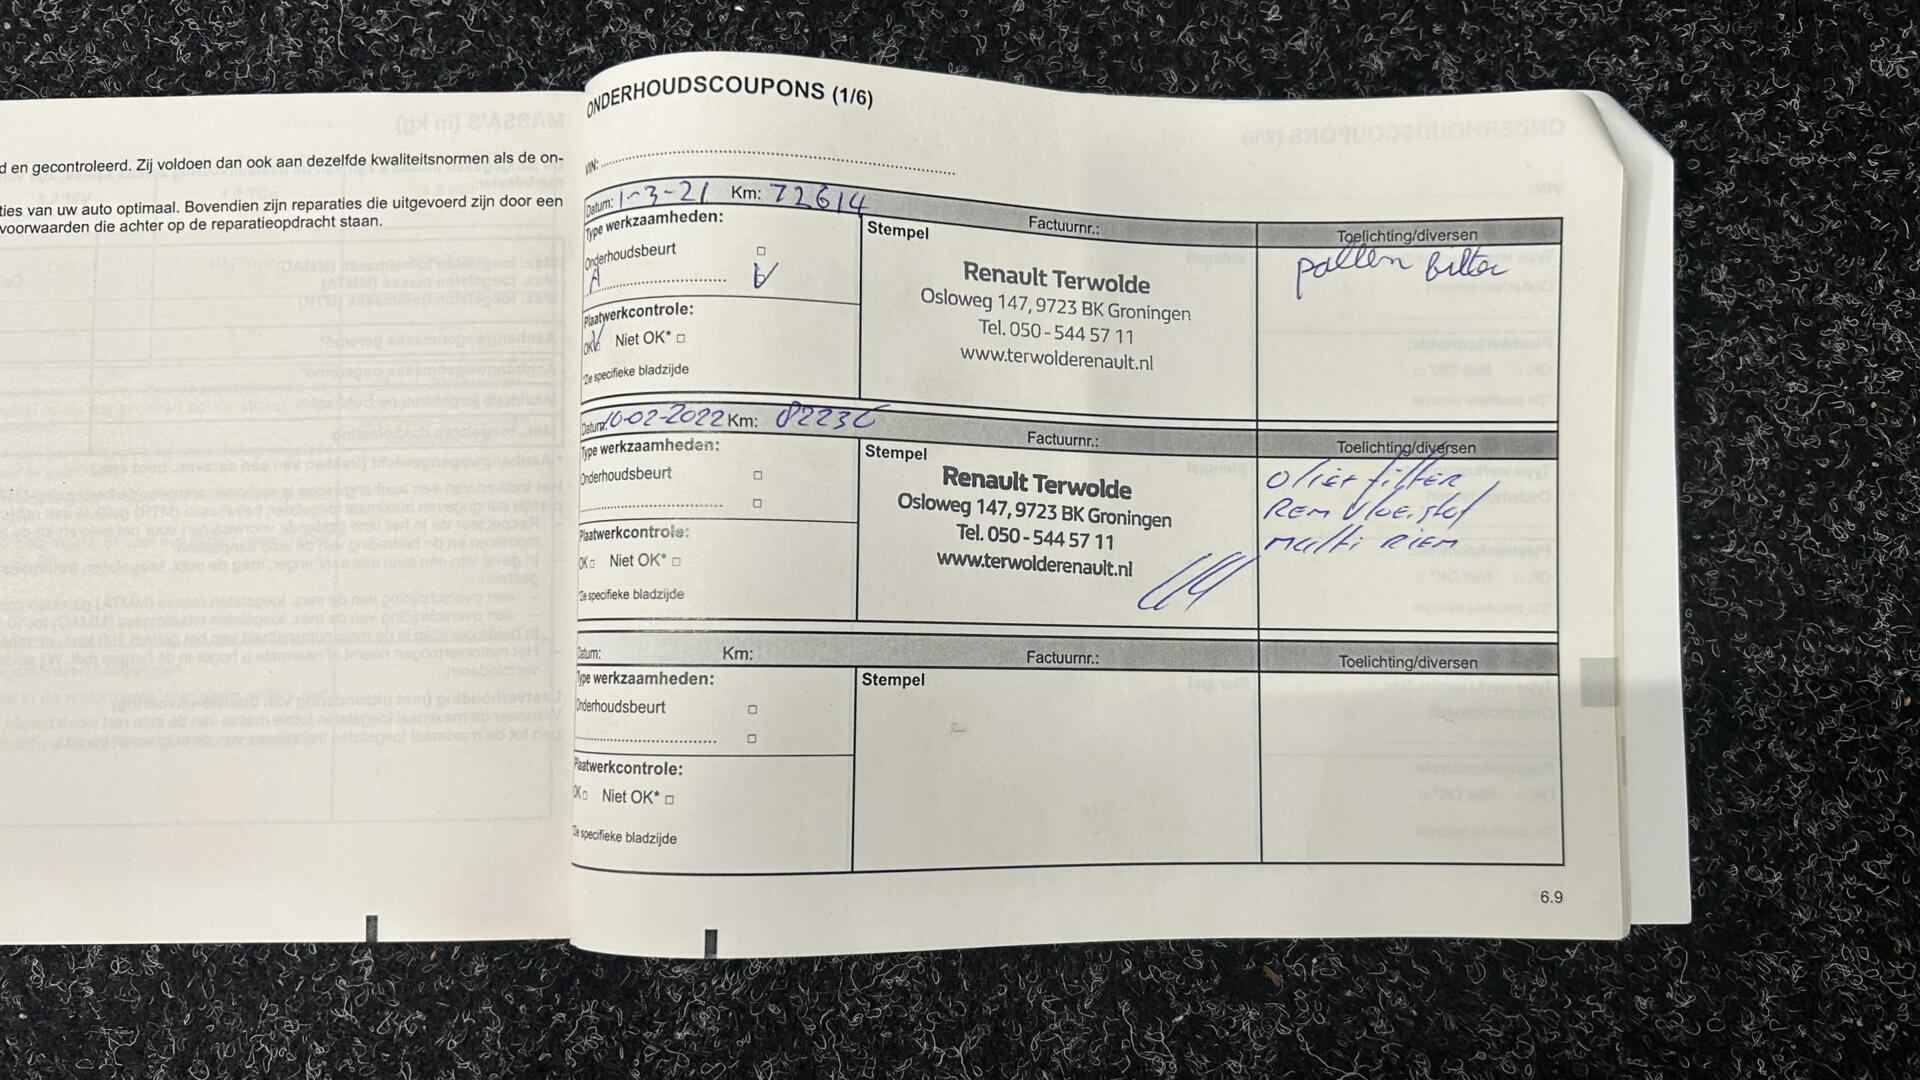 d en gecontroleerd. Zij voldoen dan ook aan dezelfde kwaliteitsnormen als de on-
ties van uw auto optimaal. Bovendien zijn reparaties die uitgevoerd zijn door een
voorwaarden die achter op de reparatieopdracht staan.
ONDERHOUDSCOUPONS (1/6)
VIN:
Datum: 1-3-21 Km: 72614
Factuurnr.:
Toelichting/diversen
Type werkzaamheden:
Onderhoudsbeurt
A
Plaatwerkcontrole:
OK Niet OK*
*Zie specifieke bladzijde
Stempel
Renault Terwolde
Osloweg 147, 9723 BK Groningen
Tel. 050 - 544 57 11
www.terwolderenault.nl
pollen filter
Datum: 10-02-2022 Km:
Factuurnr.:
Toelichting/diversen
Type werkzaamheden:
Onderhoudsbeurt
Plaatwerkcontrole:
OK Niet OK*
*Zie specifieke bladzijde
Stempel
Renault Terwolde
Osloweg 147, 9723 BK Groningen
Tel. 050 - 544 57 11
www.terwolderenault.nl
filter
Rem vloeistof
multi Riem
Datum: Km:
Factuurnr.:
Toelichting/diversen
Type werkzaamheden:
Onderhoudsbeurt
Plaatwerkcontrole:
OK Niet OK*
*Zie specifieke bladzijde
Stempel
6.9